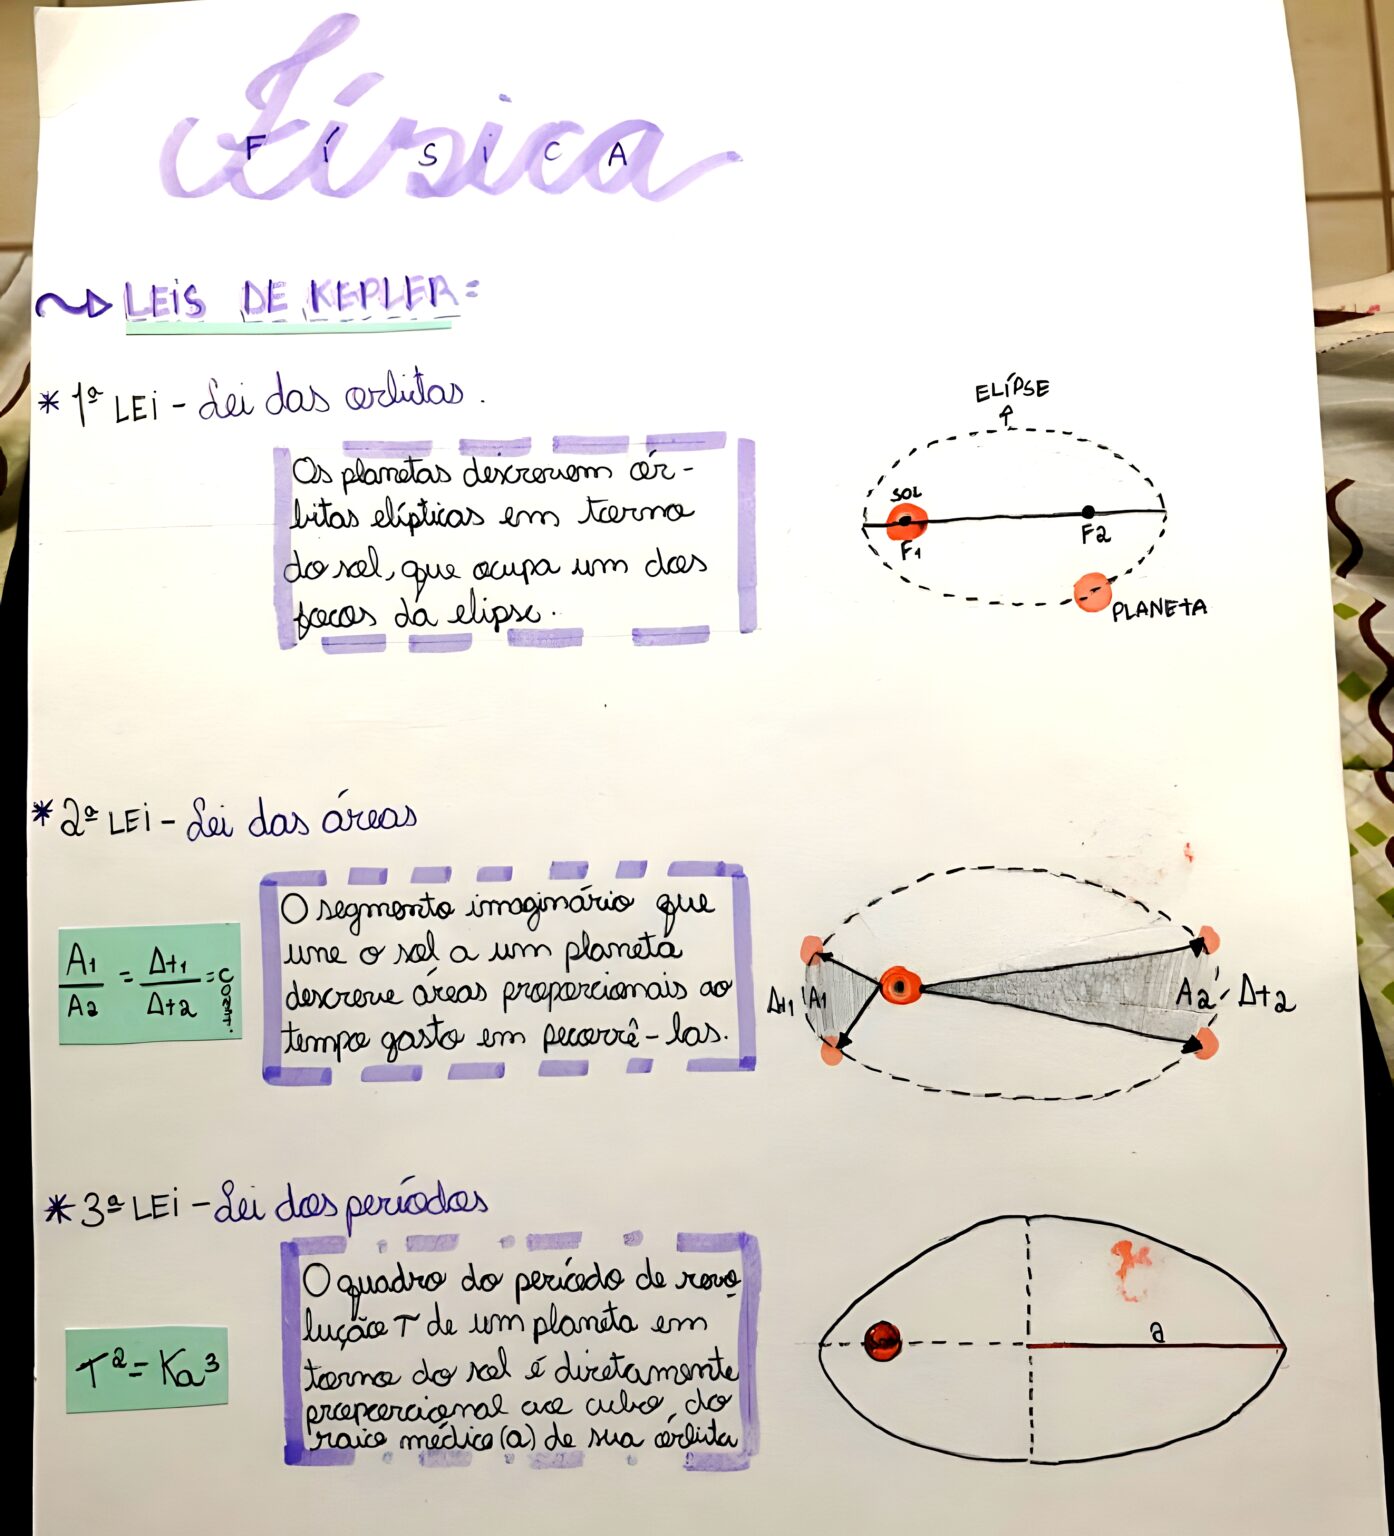 Física
FÍSICA
LEIS DE KEPLER:
* 1ª LEI - Lei das orbitas.
ELÍPSE
Os planetas descrevem ór-
bitas elípticas em torno
do sol, que ocupa um dos
focos da elipse.
SOL
F1
F2
PLANETA
* 2ª LEI - Lei das áreas
A1/A2 = Δt1/Δt2 = Const.
O segmento imaginário que
une o sol a um planeta
descreve áreas proporcionais ao
tempo gasto em pecorrê-las.
Δt1 A1
A2 Δt2
* 3ª LEI - Lei dos períodos
T² = Ka³
O quadro do período de revo
lução T de um planeta em
torno do sol é diretamente
proporcional aoe cubo, do
raio médio (a) de sua órbita
a